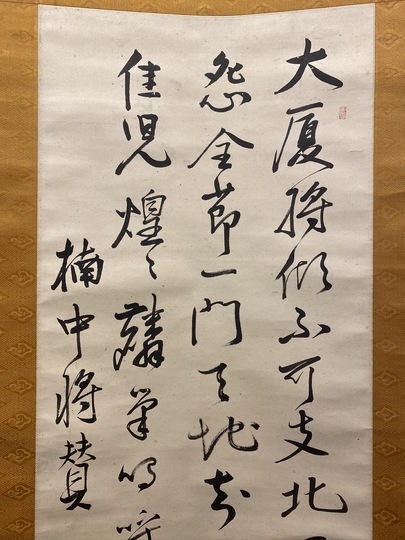 大厦将傾不可支北
怨全節一門天地知
佳児煌々
楠中将賛